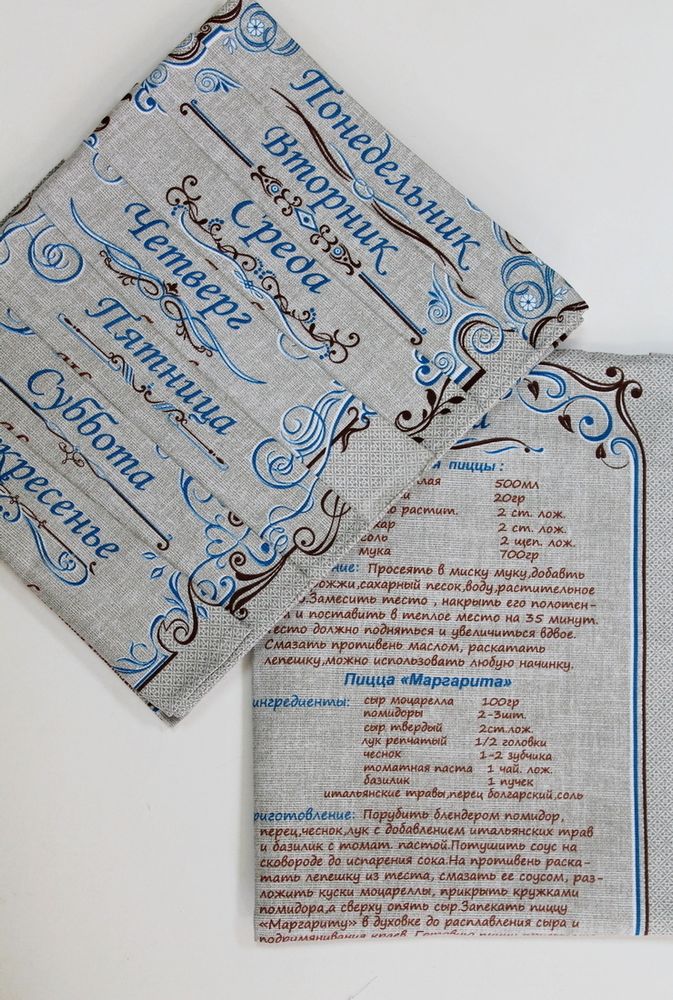 Понедельник
Вторник
Среда
Четверг
Пятница
Суббота
кресенье
пиццы:
лая 500мл
20гр
растит. 2 ст. лож.
хар 2 ст. лож.
соль 2 щеп. лож.
мука 700гр
ние: Просеять в миску муку,добавть
рожжи,сахарный песок,воду,растительное
.Замесить тесто , накрыть его полотен-
и поставить в теплое место на 35 минут.
есто должно подняться и увеличиться вдвое.
Смазать противень маслом, раскатать
лепешку,можно использовать любую начинку.
Пицца «Маргарита»
ингредиенты: сыр моцарелла 100гр
помидоры 2-3шт.
сыр твердый 2ст.лож.
лук репчатый 1/2 головки
чеснок 1-2 зубчика
томатная паста 1 чай. лож.
базилик 1 пучек
итальянские травы,перец болгарский,соль
риготовление: Порубить блендером помидор,
перец,чеснок,лук с добавлением итальянских трав
и базилик с томат. пастой.Потушить соус на
сковороде до испарения сока.На противень раска-
тать лепешку из теста, смазать ее соусом, раз-
ложить куски моцареллы, прикрыть кружками
помидора,а сверху опять сыр.Запекать пиццу
«Маргариту» в духовке до расплавления сыра и
подрумянивания краев. Готовую пиццу